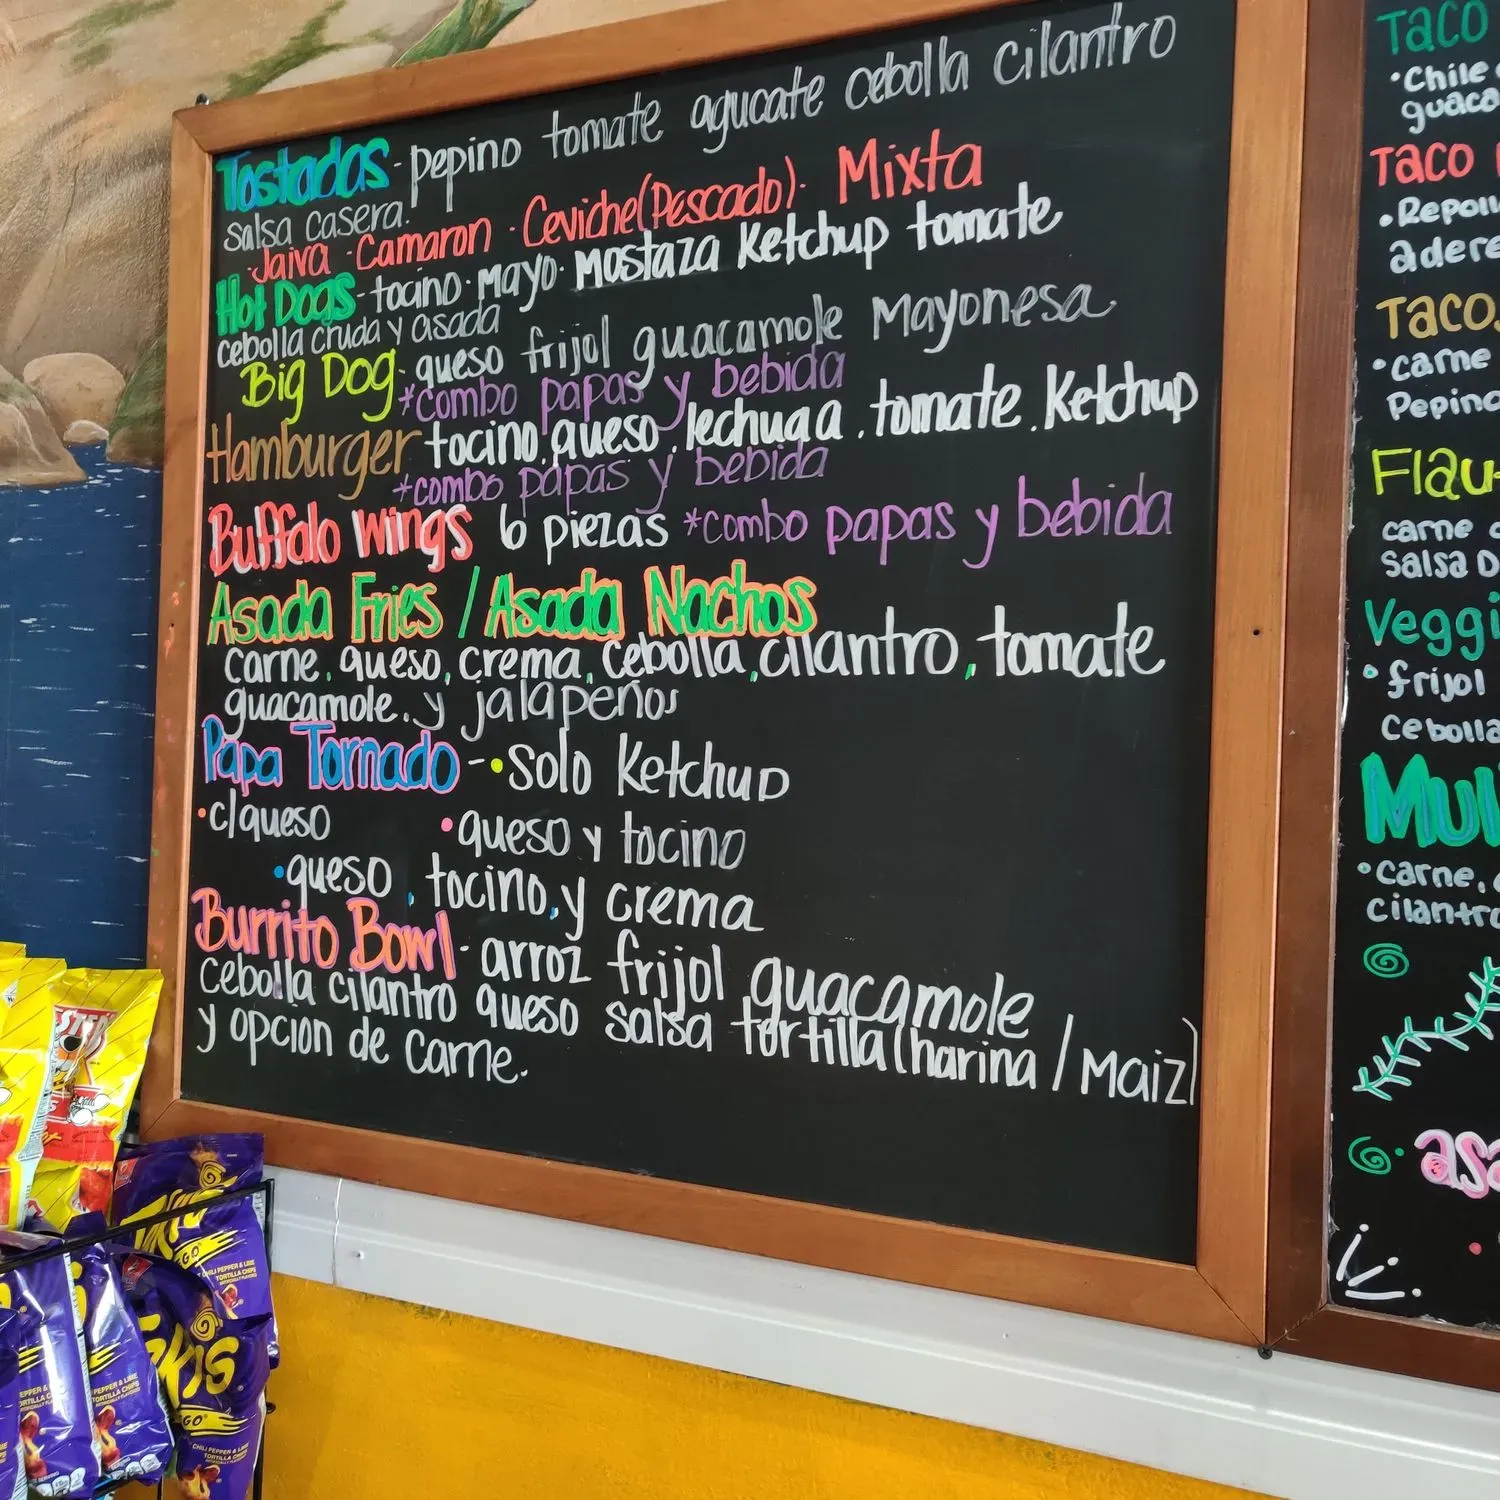 Tostadas - pepino tomate agucate cebolla cilantro
salsa casera.
· Jaiva · Camaron · Ceviche (Pescado) · Mixta
Hot Dogs - tocino · Mayo · Mostaza Ketchup tomate
cebolla cruda y asada
Big Dog - queso frijol guacamole Mayonesa
*combo papas y bebida
Hamburger tocino, queso, lechuga, tomate, Ketchup
*combo papas y bebida
Buffalo Wings 6 piezas *combo papas y bebida
Asada Fries / Asada Nachos
carne, queso, crema, cebolla, cilantro, tomate
guacamole, y jalapeños
Papa Tornado - • solo Ketchup
• c/queso • queso y tocino
• queso, tocino, y crema
Burrito Bowl - arroz frijol guacamole
cebolla cilantro queso salsa tortilla (harina / Maiz)
y opcion de carne.
Taco
• Chile
Taco
• Repoll
adere
Taco
• carne
Pepino
Flau
carne
salsa
Veggi
• frijol
cebolla
Mul
• carne,
cilantro
asa
CHILI PEPPER & LIME
TORTILLA CHIPS
PEPPER &
TORTILLA CHIPS
CHILI PEPPER & LIME
TORTILLA CHIPS